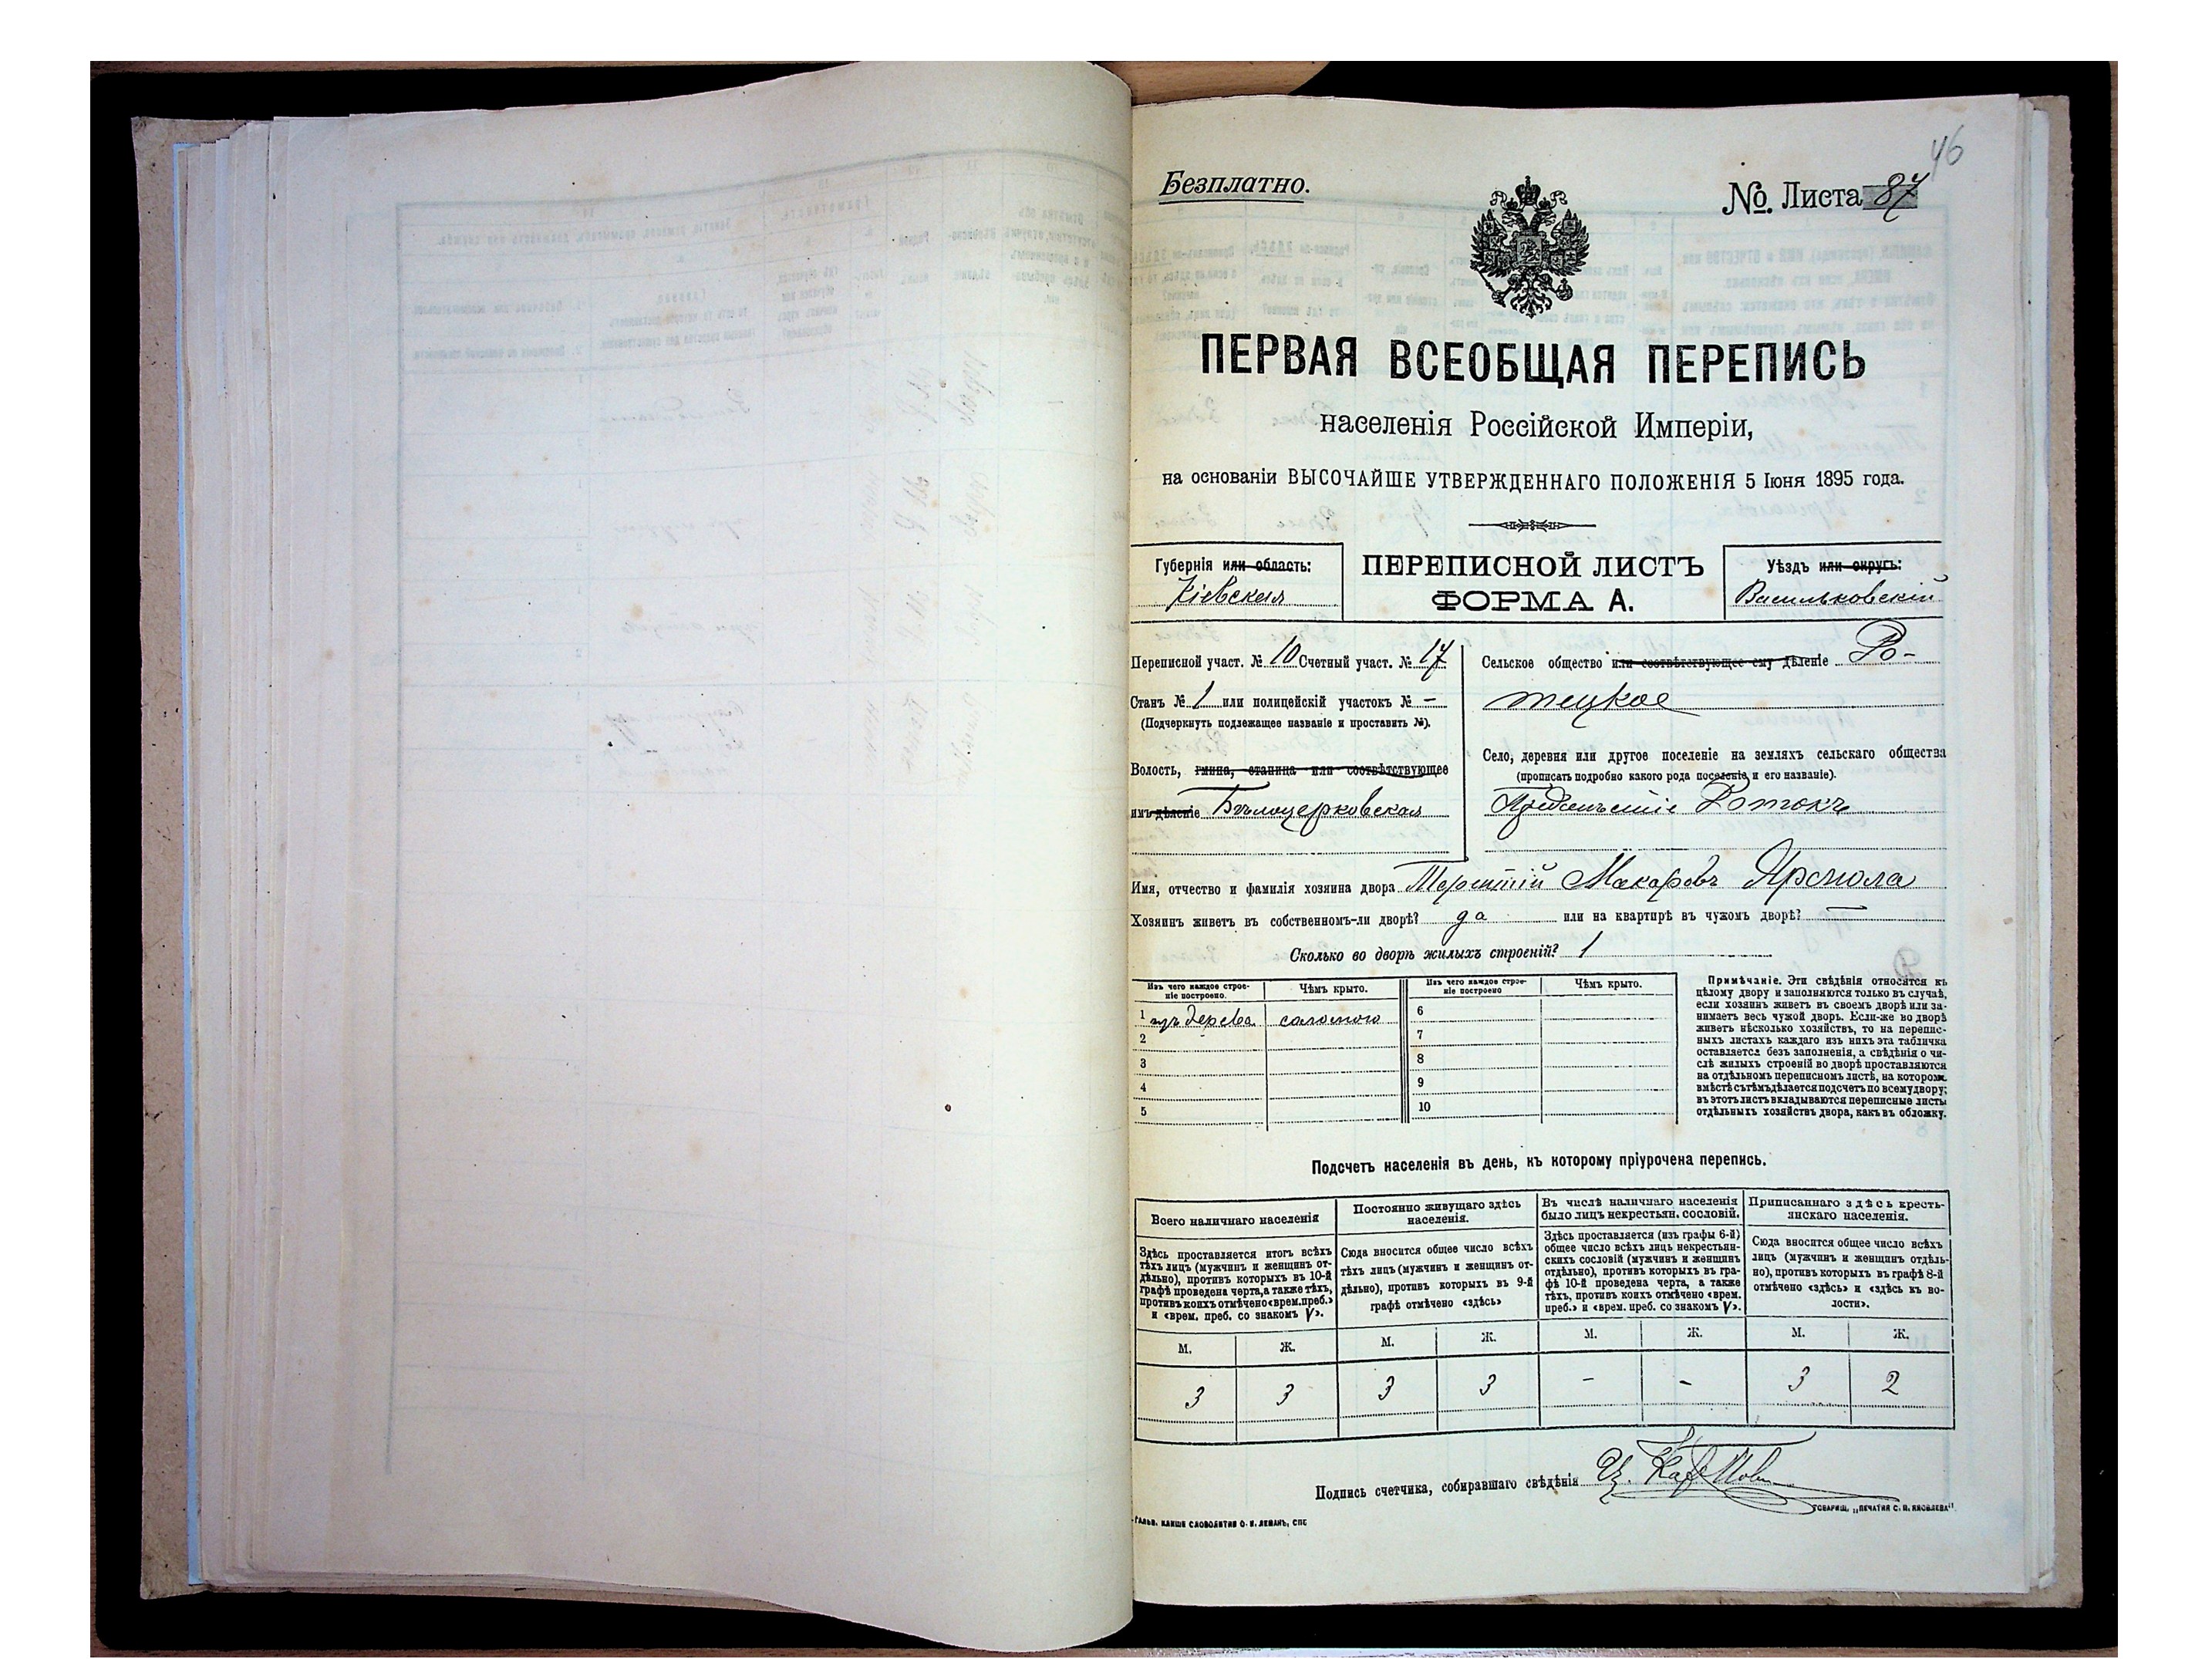 46
Безплатно.
№ Листа 87
ПЕРВАЯ ВСЕОБЩАЯ ПЕРЕПИСЬ
населенія Россійской Имперіи,
на основаніи ВЫСОЧАЙШЕ УТВЕРЖДЕННАГО ПОЛОЖЕНІЯ 5 Іюня 1895 года.
Губернія или область:
Кіевская
ПЕРЕПИСНОЙ ЛИСТЪ
ФОРМА А.
Уѣздъ или округъ:
Васильковскій
Переписной участ. № 10 Счетный участ. № 17
Станъ № 1 или полицейскій участокъ № -
(Подчеркнуть подлежащее названіе и проставить №).
Волость, гмина, станица или соотвѣтствующее
имъ дѣленіе Бѣлоцерковская
Сельское общество или соотвѣтствующее ему дѣленіе Ро-
тецкое
Село, деревня или другое поселеніе на земляхъ сельскаго общества
(прописать подробно какого рода поселеніе и его названіе).
Предмѣстіе Ротокъ
Имя, отчество и фамилія хозяина двора Терентій Макаровъ Ярмола
Хозяинъ живетъ въ собственномъ-ли дворѣ? да или на квартирѣ въ чужомъ дворѣ? —
Сколько во дворѣ жилыхъ строеній? 1
Изъ чего каждое строе-
ніе построено.
Чѣмъ крыто.
Изъ чего каждое строе-
ніе построено
Чѣмъ крыто.
1 изъ дерева соломою
2
3
4
5
6
7
8
9
10
Примѣчаніе. Эти свѣдѣнія относятся къ
цѣлому двору и заполняются только въ случаѣ,
если хозяинъ живетъ въ своемъ дворѣ или за-
нимаетъ весь чужой дворъ. Если-же во дворѣ
живетъ нѣсколько хозяйствъ, то на перепис-
ныхъ листахъ каждаго изъ нихъ эта табличка
оставляется безъ заполненія, а свѣдѣнія о чи-
слѣ жилыхъ строеній во дворѣ проставляются
на отдѣльномъ переписномъ листѣ, на которомъ
вмѣстѣ съ тѣмъ дѣлается подсчетъ по всему двору;
въ этотъ листъ вкладываются переписные листы
отдѣльныхъ хозяйствъ двора, какъ въ обложку.
Подсчетъ населенія въ день, къ которому пріурочена перепись.
Всего наличнаго населенія
Здѣсь проставляется итогъ всѣхъ
тѣхъ лицъ (мужчинъ и женщинъ от-
дѣльно), противъ которыхъ въ 10-й
графѣ проведена черта, а также тѣхъ,
противъ коихъ отмѣчено «врем. преб.»
и «врем. преб. со знакомъ V».
Постоянно живущаго здѣсь
населенія.
Сюда вносится общее число всѣхъ
тѣхъ лицъ (мужчинъ и женщинъ от-
дѣльно), противъ которыхъ въ 9-й
графѣ отмѣчено «здѣсь»
Въ числѣ наличнаго населенія
было лицъ некрестьян. сословій.
Здѣсь проставляется (изъ графы 6-й)
общее число всѣхъ лицъ некрестьян-
скихъ сословій (мужчинъ и женщинъ
отдѣльно), противъ которыхъ въ гра-
фѣ 10-й проведена черта, а также
тѣхъ, противъ коихъ отмѣчено «врем.
преб.» и «врем. преб. со знакомъ V».
Приписаннаго здѣсь кресть-
янскаго населенія.
Сюда вносится общее число всѣхъ
лицъ (мужчинъ и женщинъ отдѣль-
но), противъ которыхъ въ графѣ 8-й
отмѣчено «здѣсь» и «здѣсь къ во-
лости».
М. Ж. М. Ж. М. Ж. М. Ж.
3 3 3 3 - - 3 2
Подпись счетчика, собиравшаго свѣдѣнія
ГАЛЬВ. КЛИШЕ СЛОВОЛИТНЯ О. И. ЛЕМАНЪ, СПБ
ТОВАРИЩ. „ПЕЧАТНЯ С. П. ЯКОВЛЕВА".